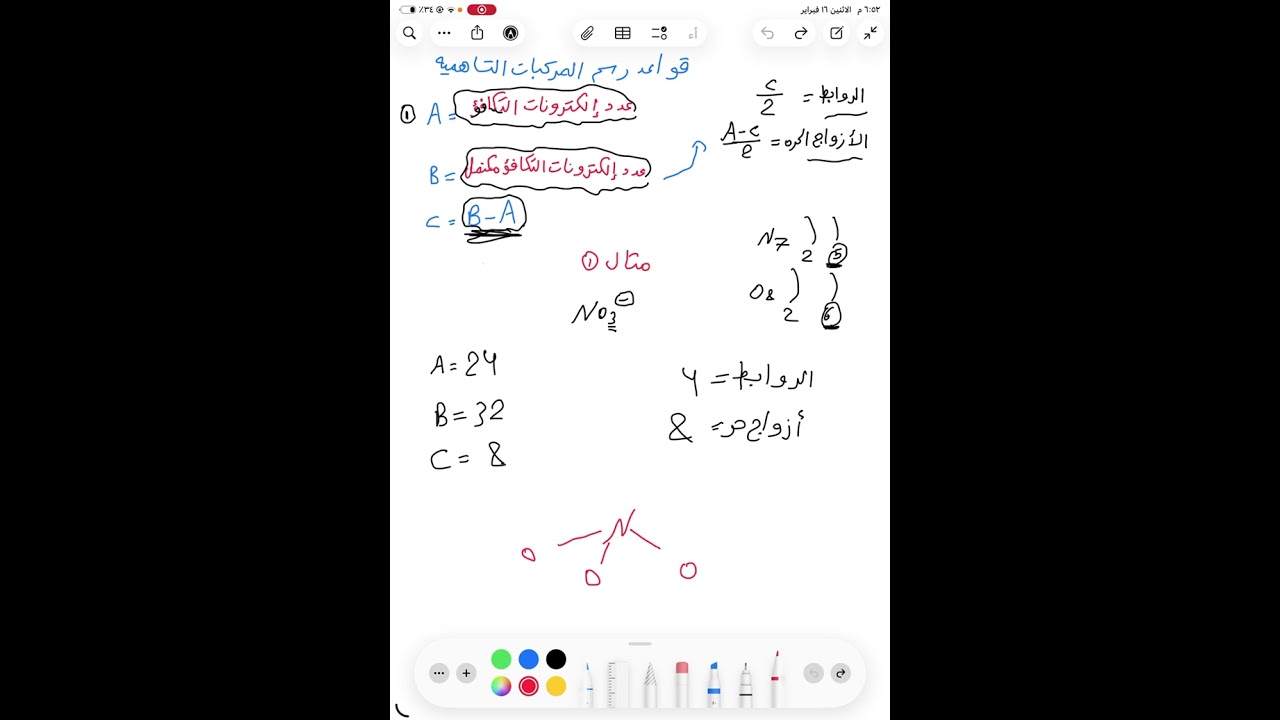 ٦:٥٢ م الاثنين ١٦ فبراير
٪٣٤
قواعد رسم المركبات التساهمية
① A = عدد إلكترونات التكافؤ
B = عدد إلكترونات التكافؤ مكتمل
C = B - A
الروابط = C/2
الأزواج الحره = A-C/2
مثال ①
NO3⁻
N7 2 5
O8 2 6
A = 24
B = 32
C = 8
الروابط = 4
أزواج حرة = 8
N
O O O